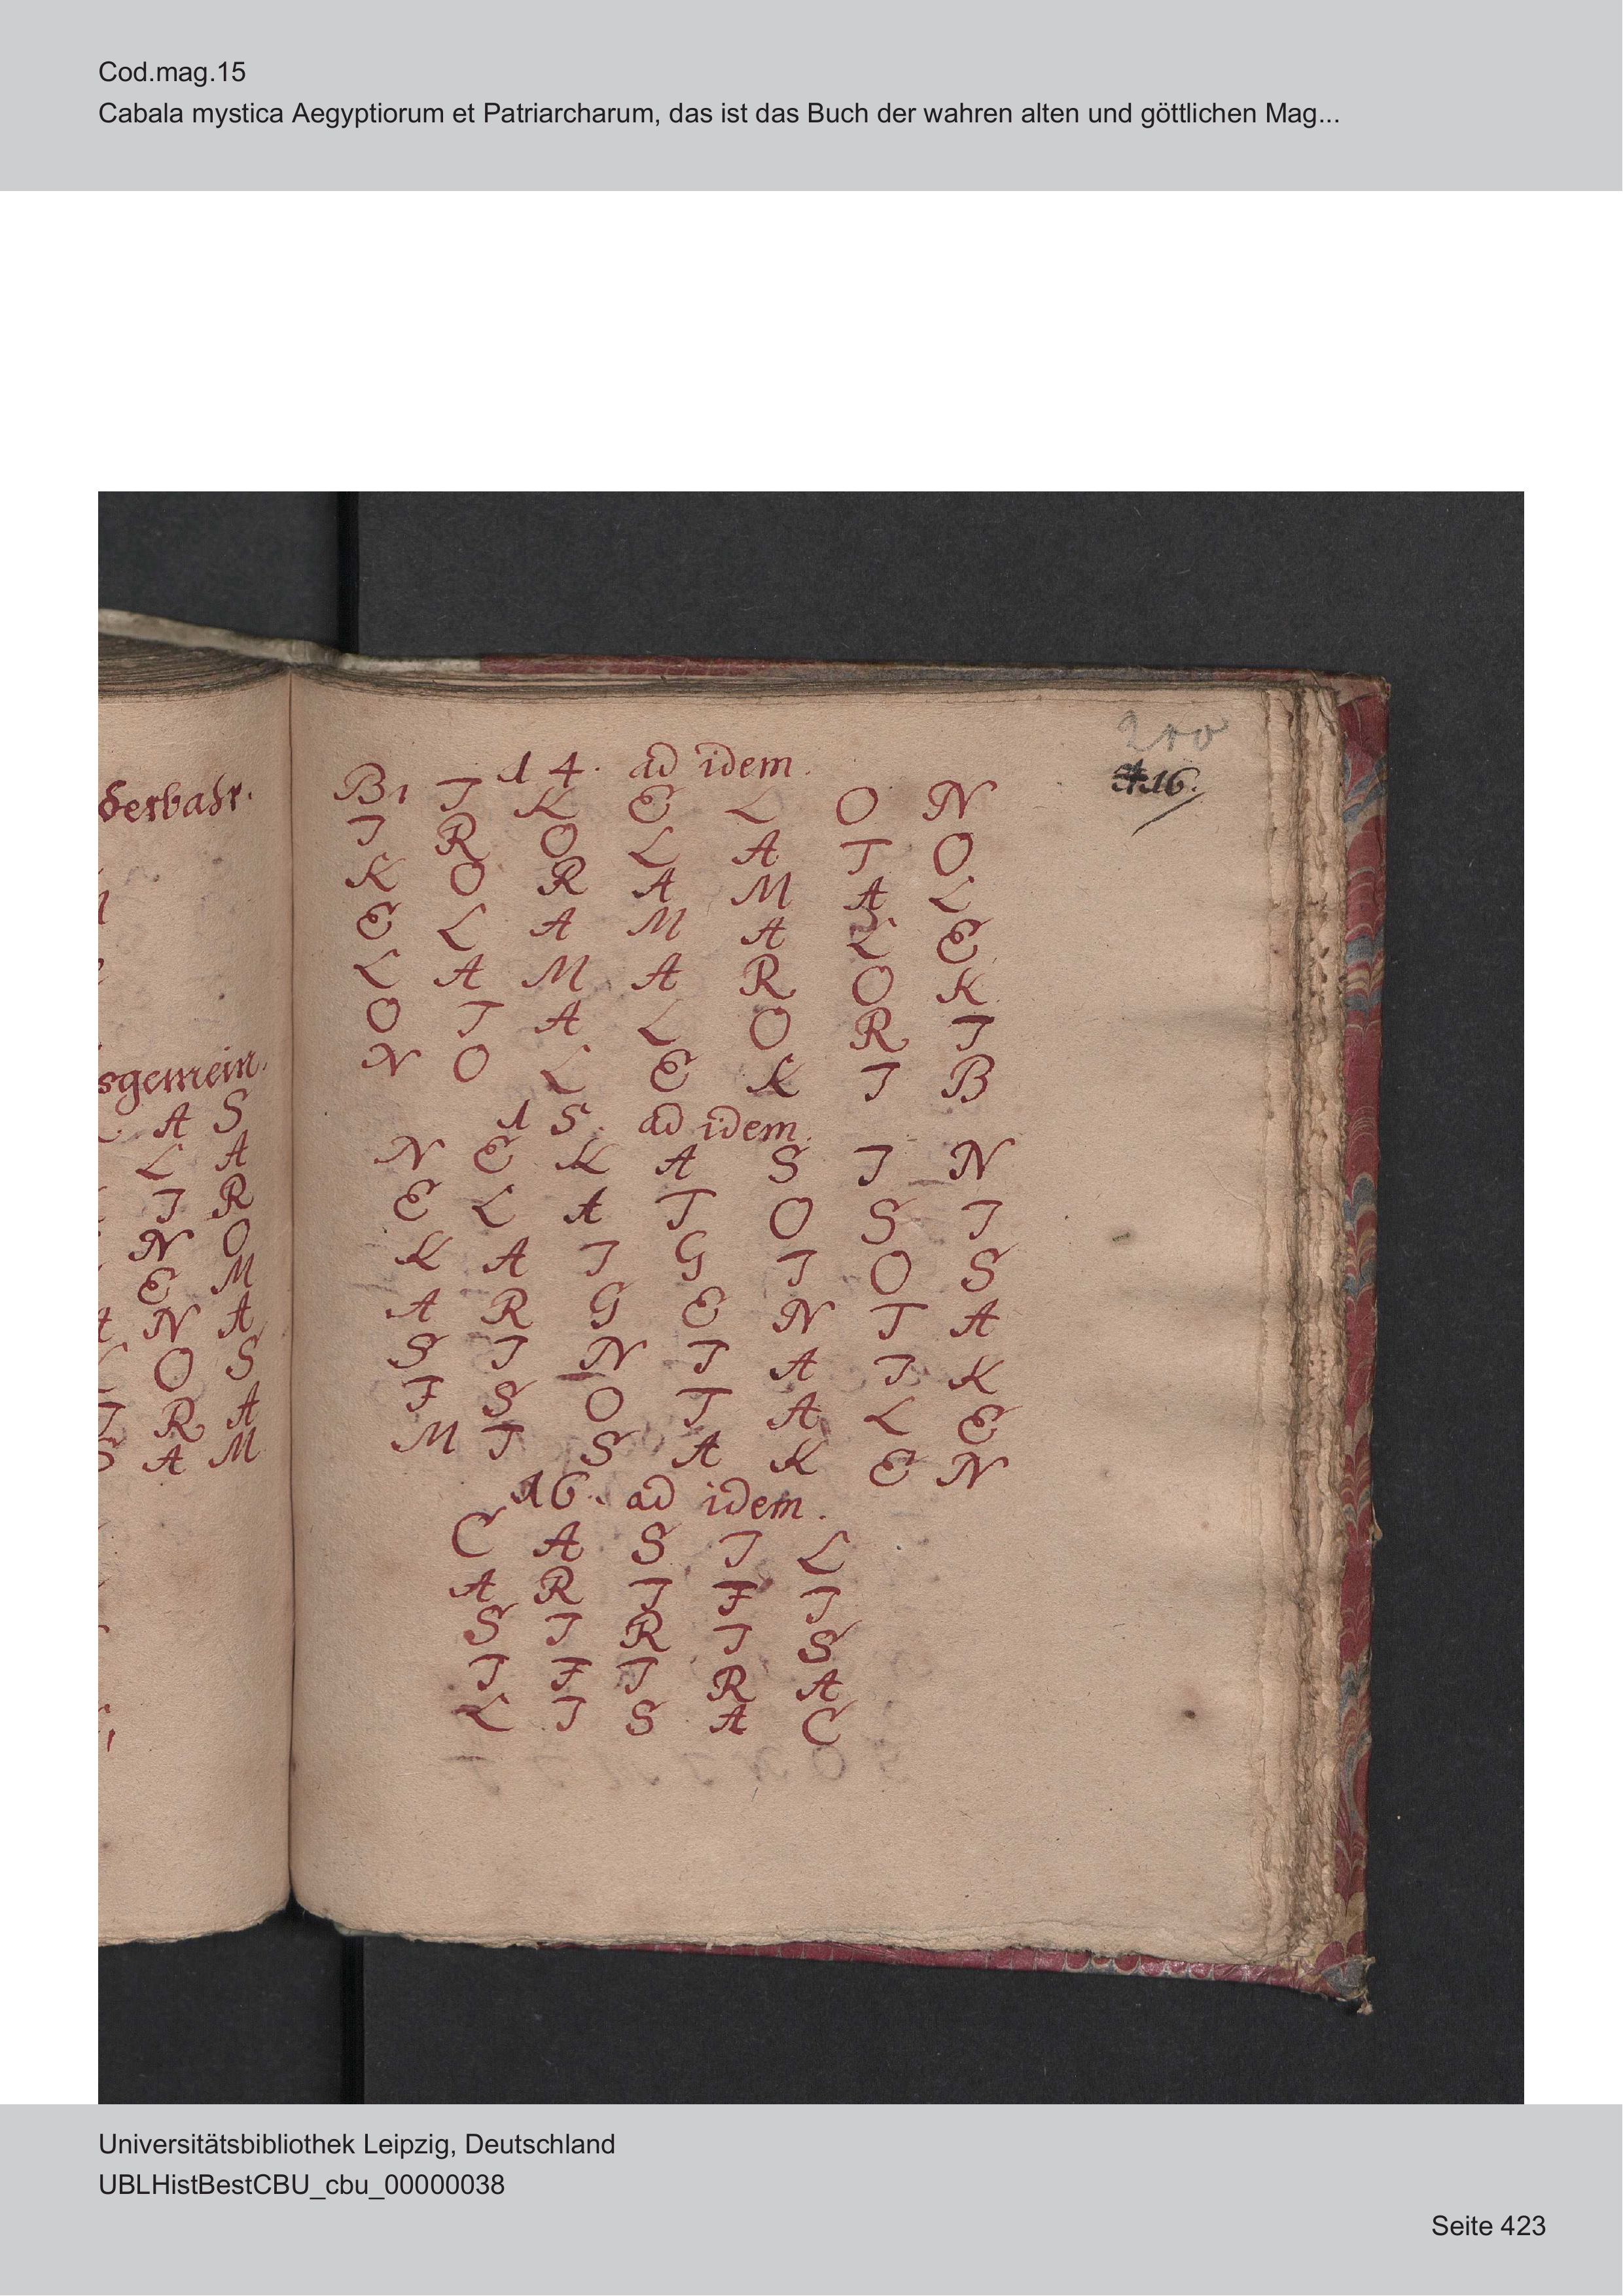 Cod.mag.15
Cabala mystica Aegyptiorum et Patriarcharum, das ist das Buch der wahren alten und göttlichen Mag...
200
416.
derbahr.
sgemein.
A S
L A
I R
N O
E M
A N A
L O S
I R A
S A M
14. ad idem.
B I K E L O N
I R O L A T O
K O R A M A L
E L A M A L E
L A M A R O K
O T A L O R I
N O L E K I B
15. ad idem.
N E K A S I N
E L A T O S I
K A I G I O S
A R G E N T A
S I N I A I K
F S O T A L E
M I S A K E N
16. ad idem.
C A S I L
A R I F I
S I R I S
I F I R A
L I S A C
Universitätsbibliothek Leipzig, Deutschland
UBLHistBestCBU_cbu_00000038
Seite 423